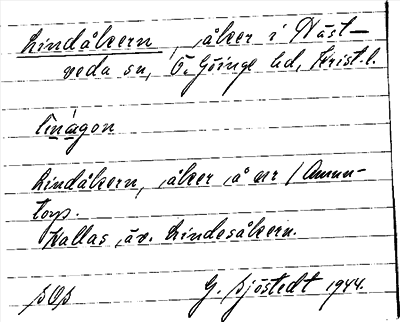 Lindåkern, åker i Näst-
veda sn, Ö. Göinge hd, Krist. l.
linágon
Lindåkern, åker å nr 1 Amun-
torp.
Kallas äv. Lindesåkern.
G. Sjöstedt 1944.